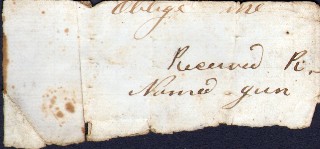 Oblige me
Received
Named gun